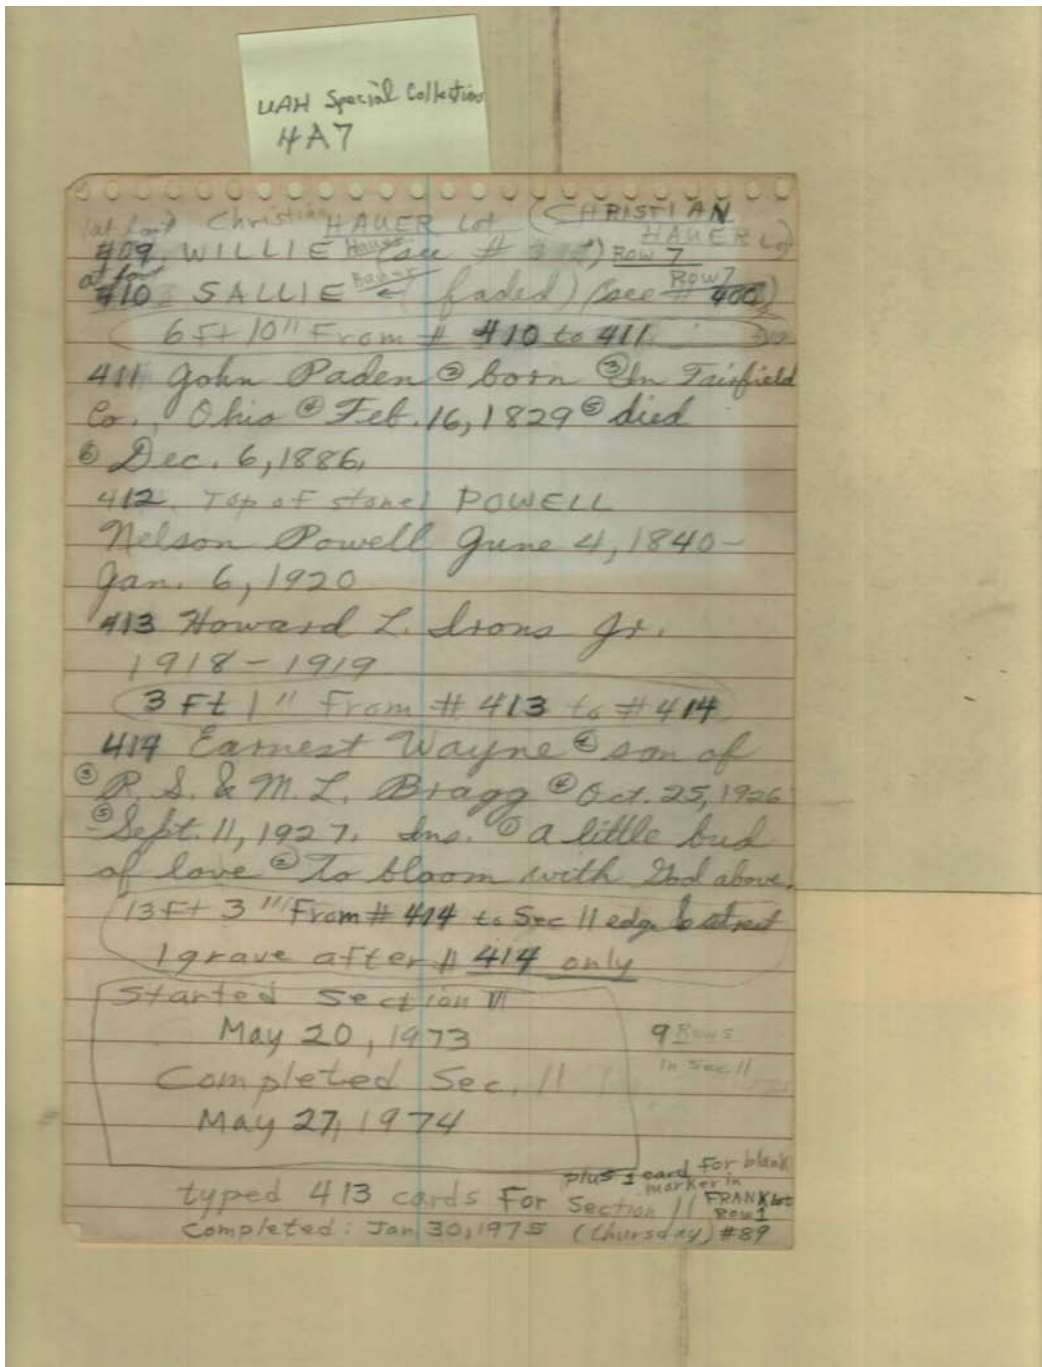 UAH Special Collections
4A7
(at foot Christian HAUER Lot (CHRISTIAN
HAUER Lot)
409. WILLIE Hauer (see # ) Row 7
at foot Row 7
410 SALLIE Hauer ← (faded) (see # 400)
6 Ft 10" From # 410 to 411.
411 John Paden ② born ③ In Fairfield
Co., Ohio ④ Feb. 16, 1829 ⑤ died
⑥ Dec. 6, 1886.
412. Top of stone) POWELL
Nelson Powell June 4, 1840-
Jan. 6, 1920
413 Howard L. Irons Jr.
1918-1919
3 Ft 1" From # 413 to # 414
414 Earnest Wayne ② son of
③ R. S. & M. L. Bragg ④ Oct. 25, 1926
⑤ -Sept. 11, 1927. Ins. ① A little bud
of love ② To bloom with God above.
13 Ft 3" From # 414 to Sec 11 edge to street
1 grave after # 414 only
Started Section 11
May 20, 1973
9 Rows
in Sec. 11
Completed Sec. 11
May 27, 1974
plus 1 card for blank
marker in
typed 413 cards For Section 11 FRANK Lot
Row 1
Completed: Jan 30, 1975 (thursday) #89